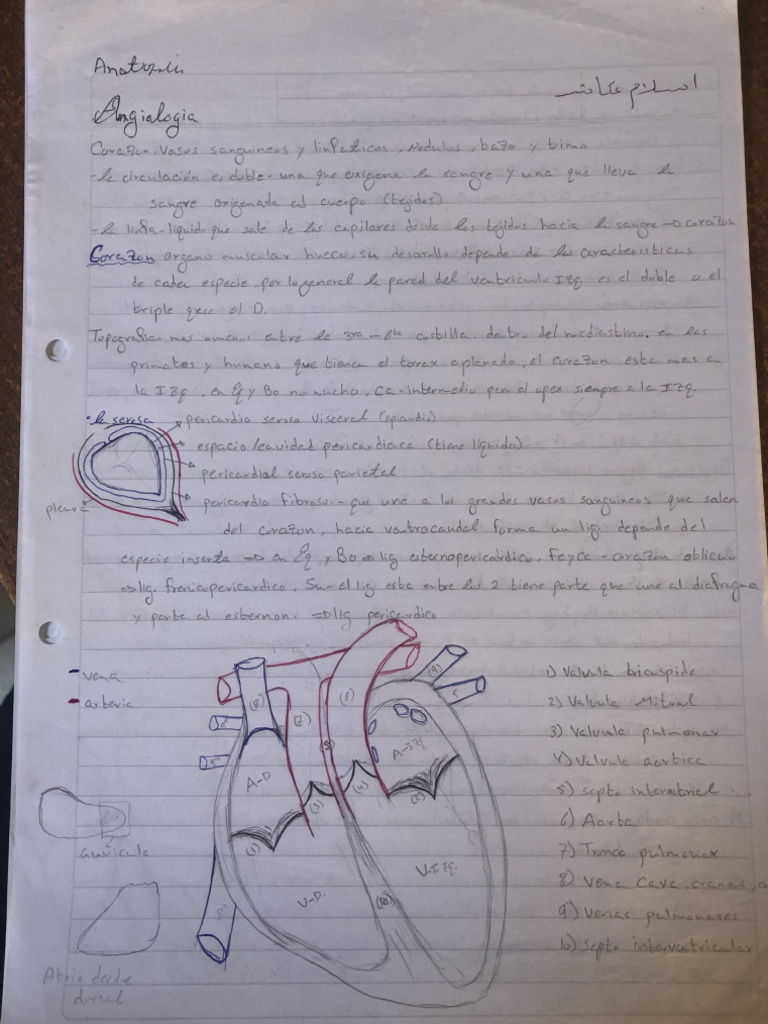 Anatomia
اسلام عكاشه
Angialogia
Corazon, Vasos sanguineos y linfaticos, Nodulos, bazo y timo
- la circulación es doble - una que oxigena la sangre y una que lleva la
sangre oxigenada al cuerpo (tejidos)
- la linfa - liquido que sale de los capilares desde los tejidos hacia la sangre → corazon
Corazon organo muscular hueco, su desarollo depende de las caracteristicas
de cada especie, por lo general la pared del ventriculo Izq. es el doble o el
triple que el D.
Topografia - mas o menos entre la 3ra - 6ta costilla dentr. del mediastino. en los
primates y humano que tienen el torax aplanado, el corazon esta mas a
la Izq, en Eq y Bo no mucho, Ca - intermedio pero el apex siempre a la IZQ.
• la serosa
pericardio seroso visceral (epicardio)
espacio/cavidad pericardiaca (tiene liquido)
pericardial seroso parietal
pleura
pericardio fibroso - que une a los grandes vasos sanguineos que salen
del corazon, hacia ventrocaudal forma un lig. depende del
especie inserta → en Eq y Bo → lig esternopericardico. Fe y Ca - corazon oblicuo
→ lig. frenicopericardico. Su - el lig esta entre los 2 tiene parte que une al diafragma
y parte al esternon. → lig. pericardico
- vena
- arteria
(8) (7) (6) (9) 9
9 9
(5)
A-D
A-IZq.
(3) (4)
(1) (2)
V-D.
V-IZq.
(10)
8
auricula
Atrio desde
dorsal
1) Valvula tricuspide
2) Valvula Mitral
3) Valvula pulmonar
4) Valvula aortica
5) septo interatrial
6) Aorta
7) Tronco pulmonar
8) Vena Cava, craneal,
9) Venas pulmonares
10) septo interventricular